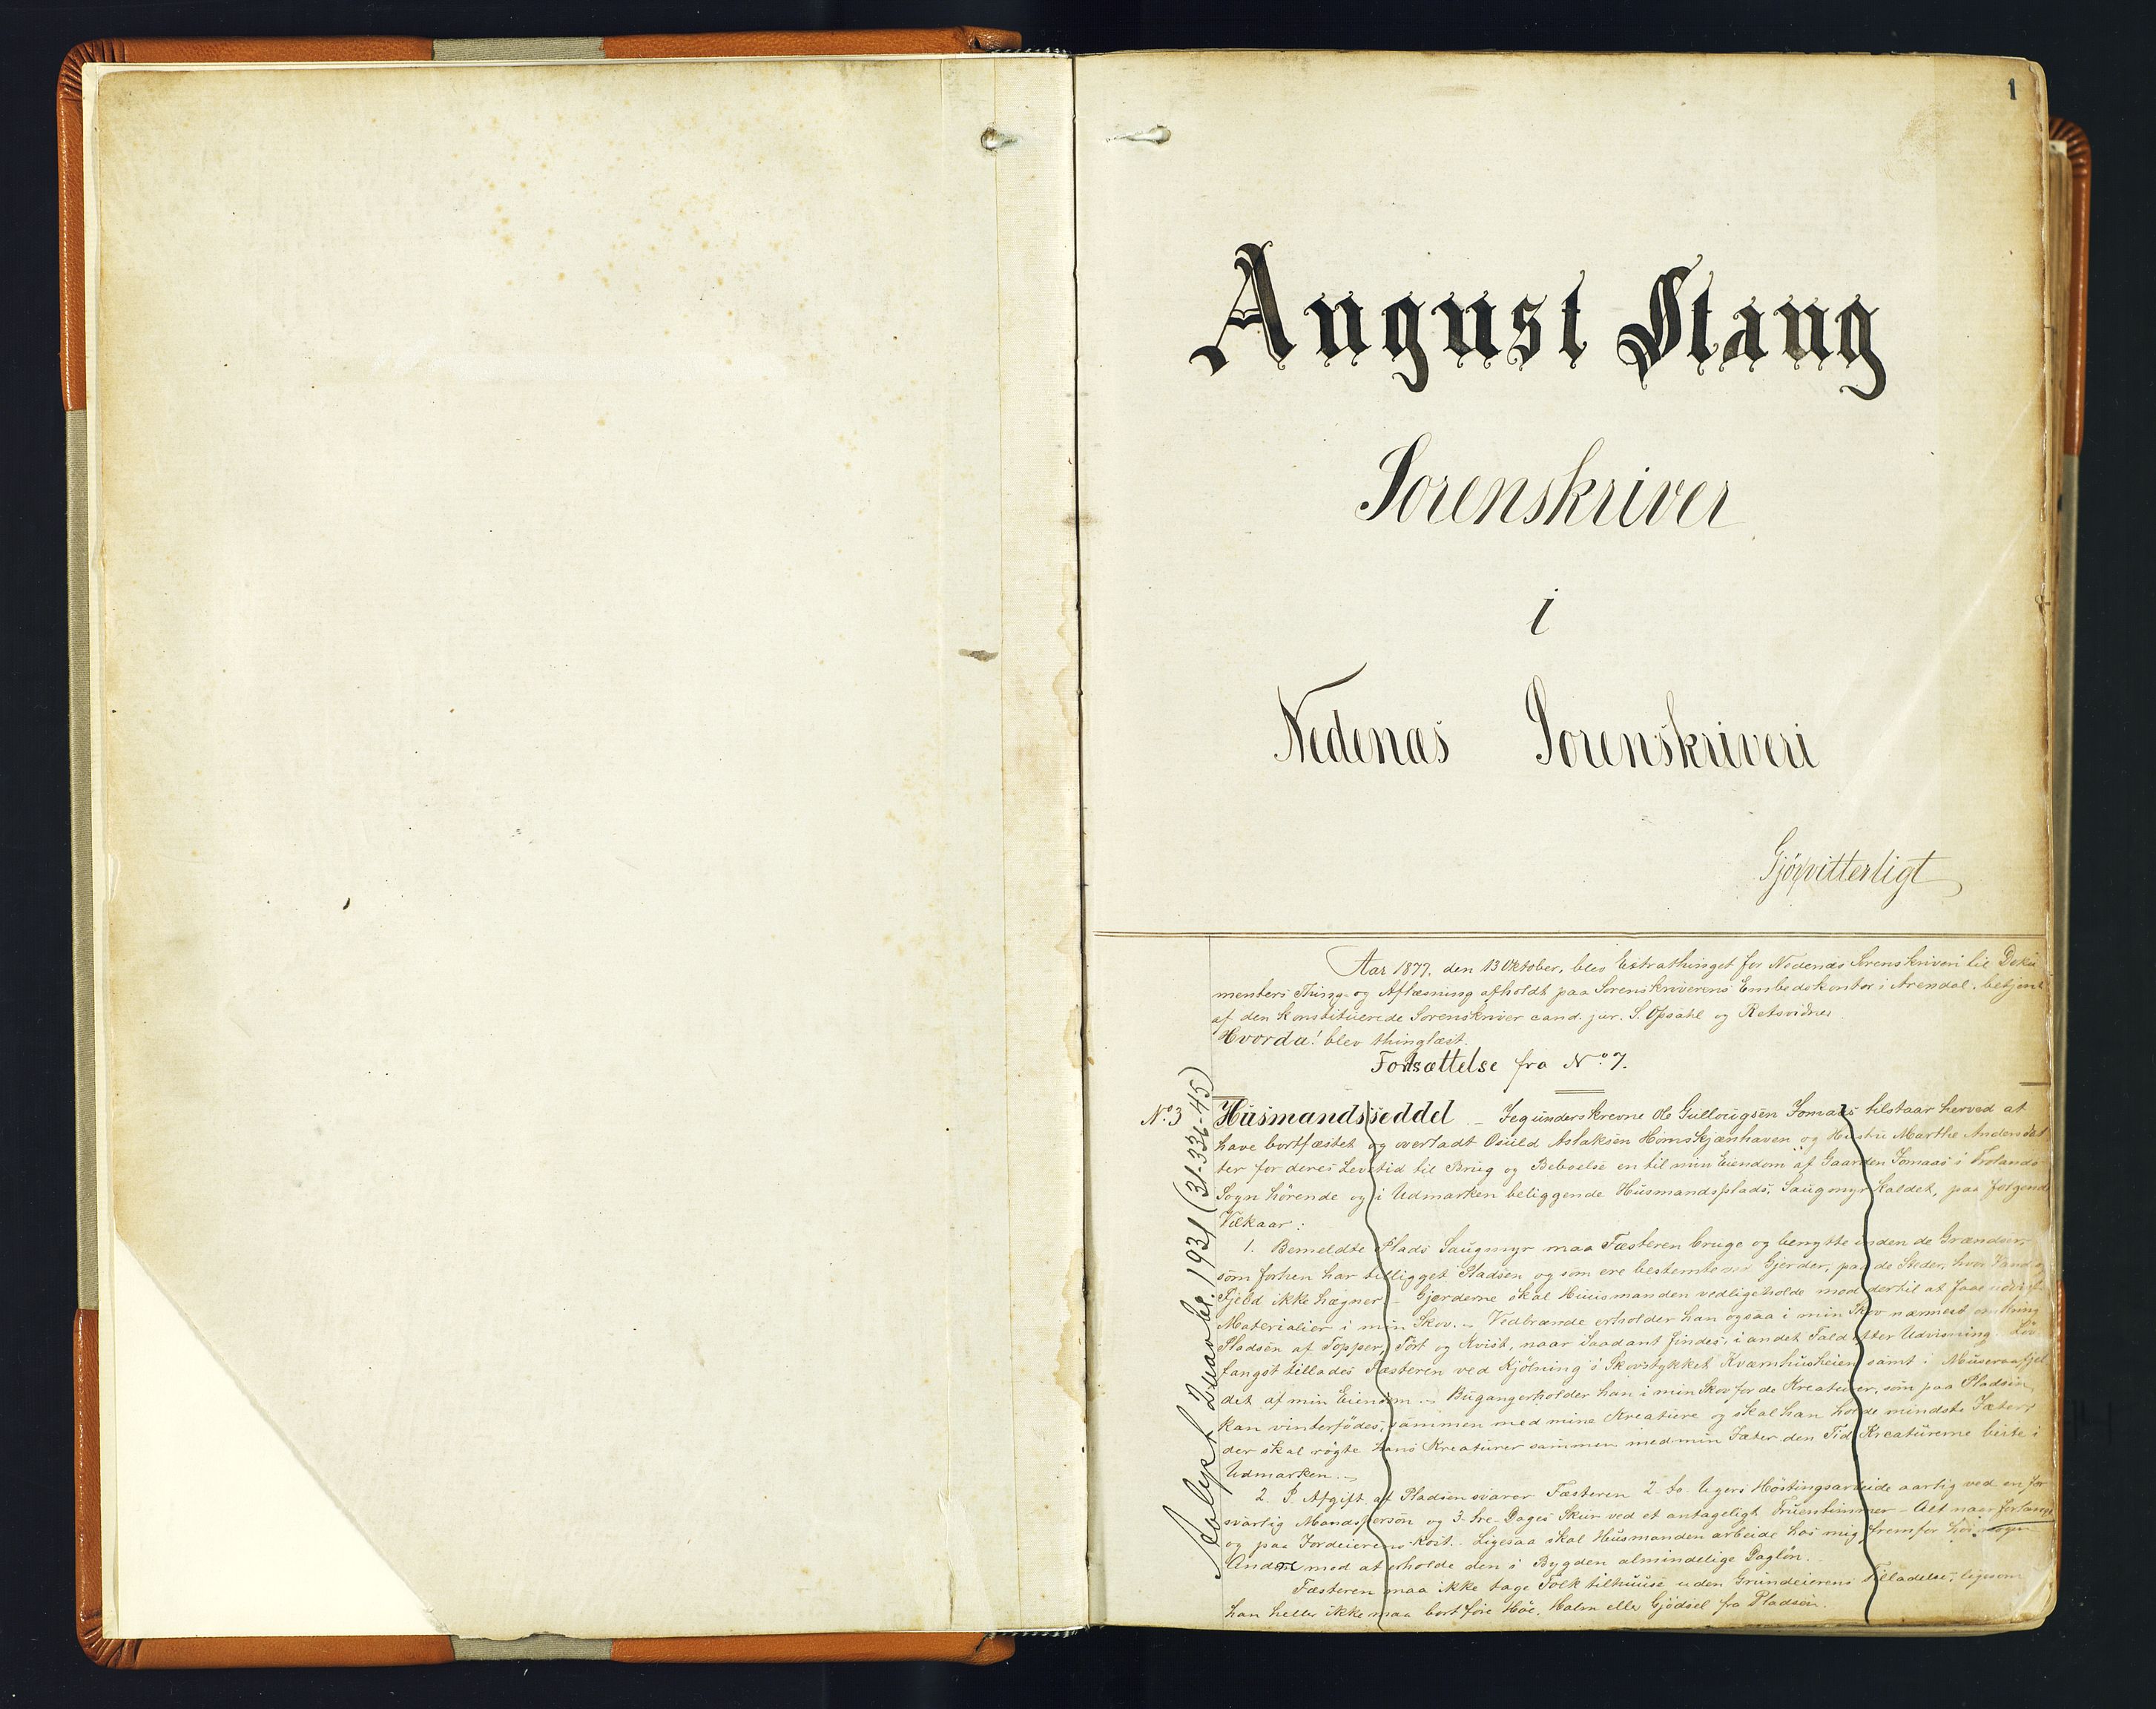 1
August Stang
Sorenskriver
i
Nedenæs Sorenskriveri
Gjørvitterligt
Aar 1877, den 13 Oktober, blev Extrathinget for Nedenæs Sorenskriveri til Doku
menters Thing- og Aflæsning afholdt paa Sorenskriverens Embedskontor i Arendal, betjent
af den konstituerede Sorenskriver cand. jur. S. Opsahl og Retsvidner.
Hvorda! blev thinglæst.
Fortsættelse fra No 7.
No 3 Husmandsseddel. – Jeg underskrevne Ole Gullougsen Tomaas tilstaar herved at
have bortfæstet og overladt Osuld Aslaksen Hømskjænhaven og Hustru Marthe Andersdat
ter for deres Levetid til Brug og Beboelse en til min Eiendom af Gaarden Tomaas i Frolands
Sogn hörende og i Udmarken beliggende Husmandsplads, Saugmyr kaldet, paa følgende
Vilkaar:
1. Bemeldte Plads Saugmyr maa Fæsteren bruge og benytte inden de Grændser,
som forhen har tilligget Pladsen og som ere bestemte ved Gjerder, paa de Steder, hvor Vand og
Fjeld ikke hægner. – Gjerderne skal Huusmanden vedligeholde mod dertil at faae udvist
Materialier i min Skov. – Vedbrænde erholder han ogsaa i min Skov nærmest omkring
Pladsen af Topper, Tört og Kvist, naar Saadant findes, i andet Fald efter Udvisning. Löv
fangst tillades Fæsteren ved Kjölning i Skovstykket Kværnhusheien samt i
det af min Eiendom. – Bugang erholder han i min Skov for de Kreaturer, som paa Pladsen
kan vinterfödes, sammen med mine Kreature og skal han holde mindste Jæter,
der skal rögte hans Kreaturer sammen med min Jæter den Tid Kreaturerne beite i
Udmarken. –
2. I Afgift af Pladsen svarer Fæsteren 2 to Ugers Höstingsarbeide aarlig ved en for
svarlig Mandsperson og 3 tre Dages Skur ved et antageligt Fruentimmer – Alt naar forlanges
og paa Jordeierens Kost. Ligesaa skal Husmanden arbeide hos mig fremfor hos nogen
Anden mod at erholde den i Bygden almindelige Daglön. –
Fæsteren maa ikke tage Folk tilhuuse uden Grundeierens Tilladelse, ligesom
han heller ikke maa bortföre Höe, Halm eller Gjödsel fra Pladsen.
Avlyst 2 1931 (31-336-45)